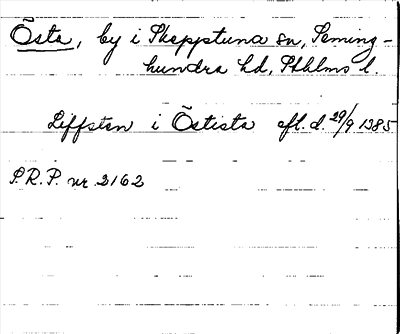 Östa, by i Skepptuna sn, Seming-
hundra hd, Sthlms l.
Leffsten i Östista afl. d. 29/9 1385
S.R.P. nr 2162